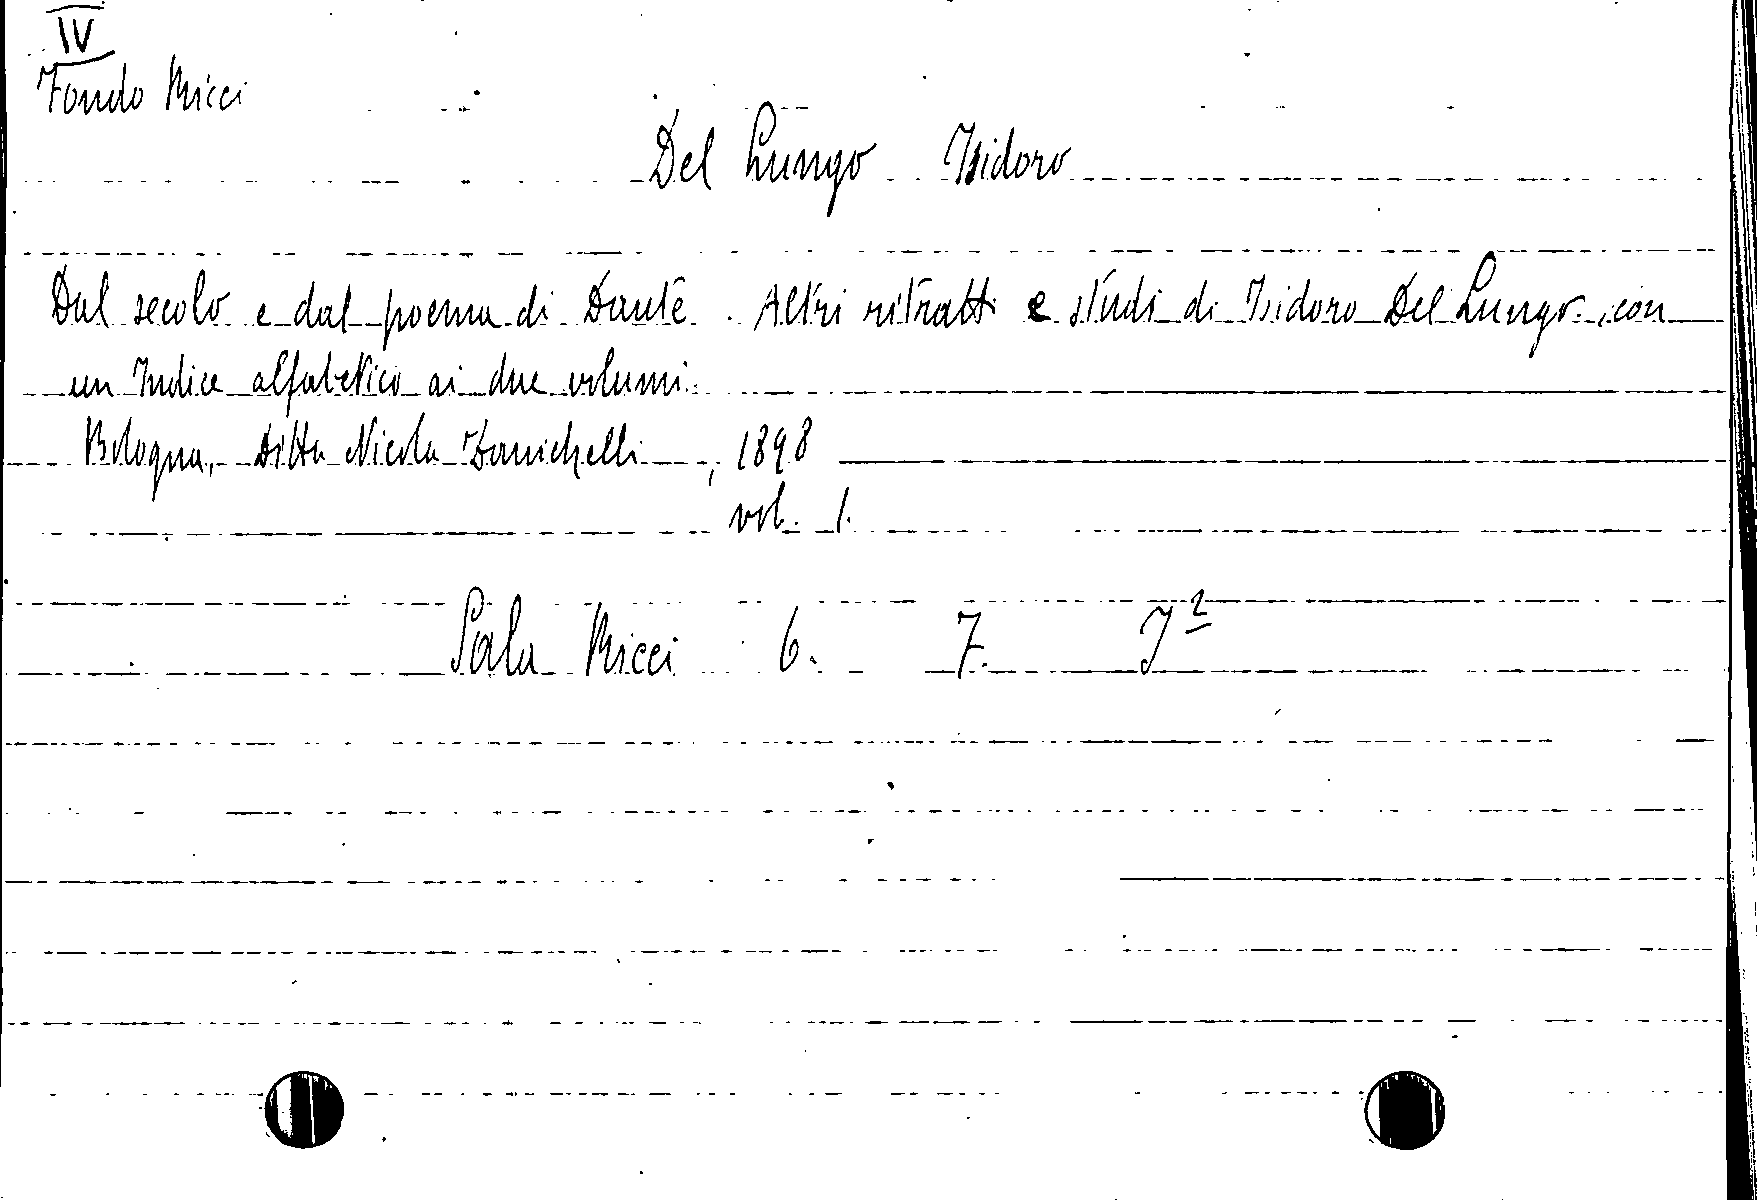 IV
Fondo Ricci
Del Lungo Isidoro
Dal secolo e dal poema di Dante. Altri ritratti e studi di Isidoro Del Lungo, con
un Indice alfabetico ai due volumi.
Bologna, Ditta Nicola Zanichelli, 1898
vol. 1.
Sala Ricci 6. 7. J²